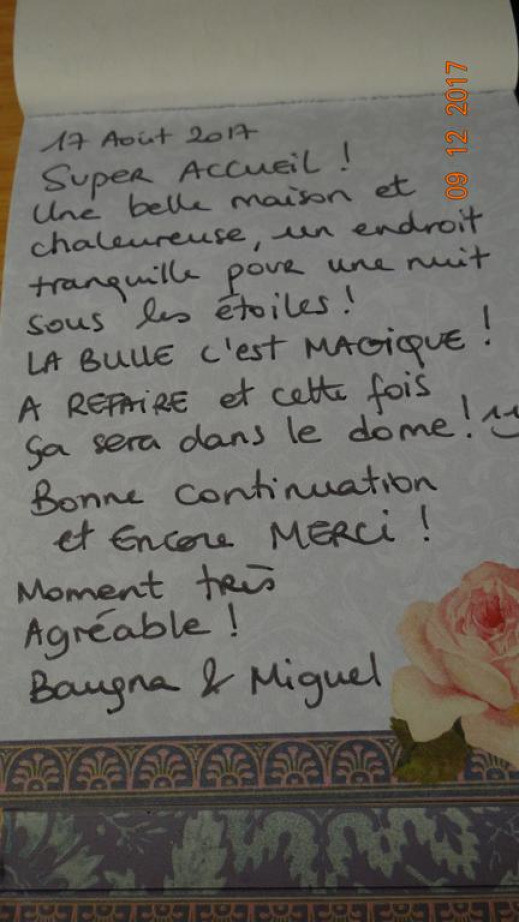 17 Août 2017
Super Accueil !
Une belle maison et
chaleureuse, un endroit
tranquille pour une nuit
sous les étoiles !
LA BULLE c'est MAGIQUE !
A REFAIRE et cette fois
ça sera dans le dome !
Bonne continuation
et Encore MERCI !
Moment très
Agréable !
& Miguel
09 12 2017